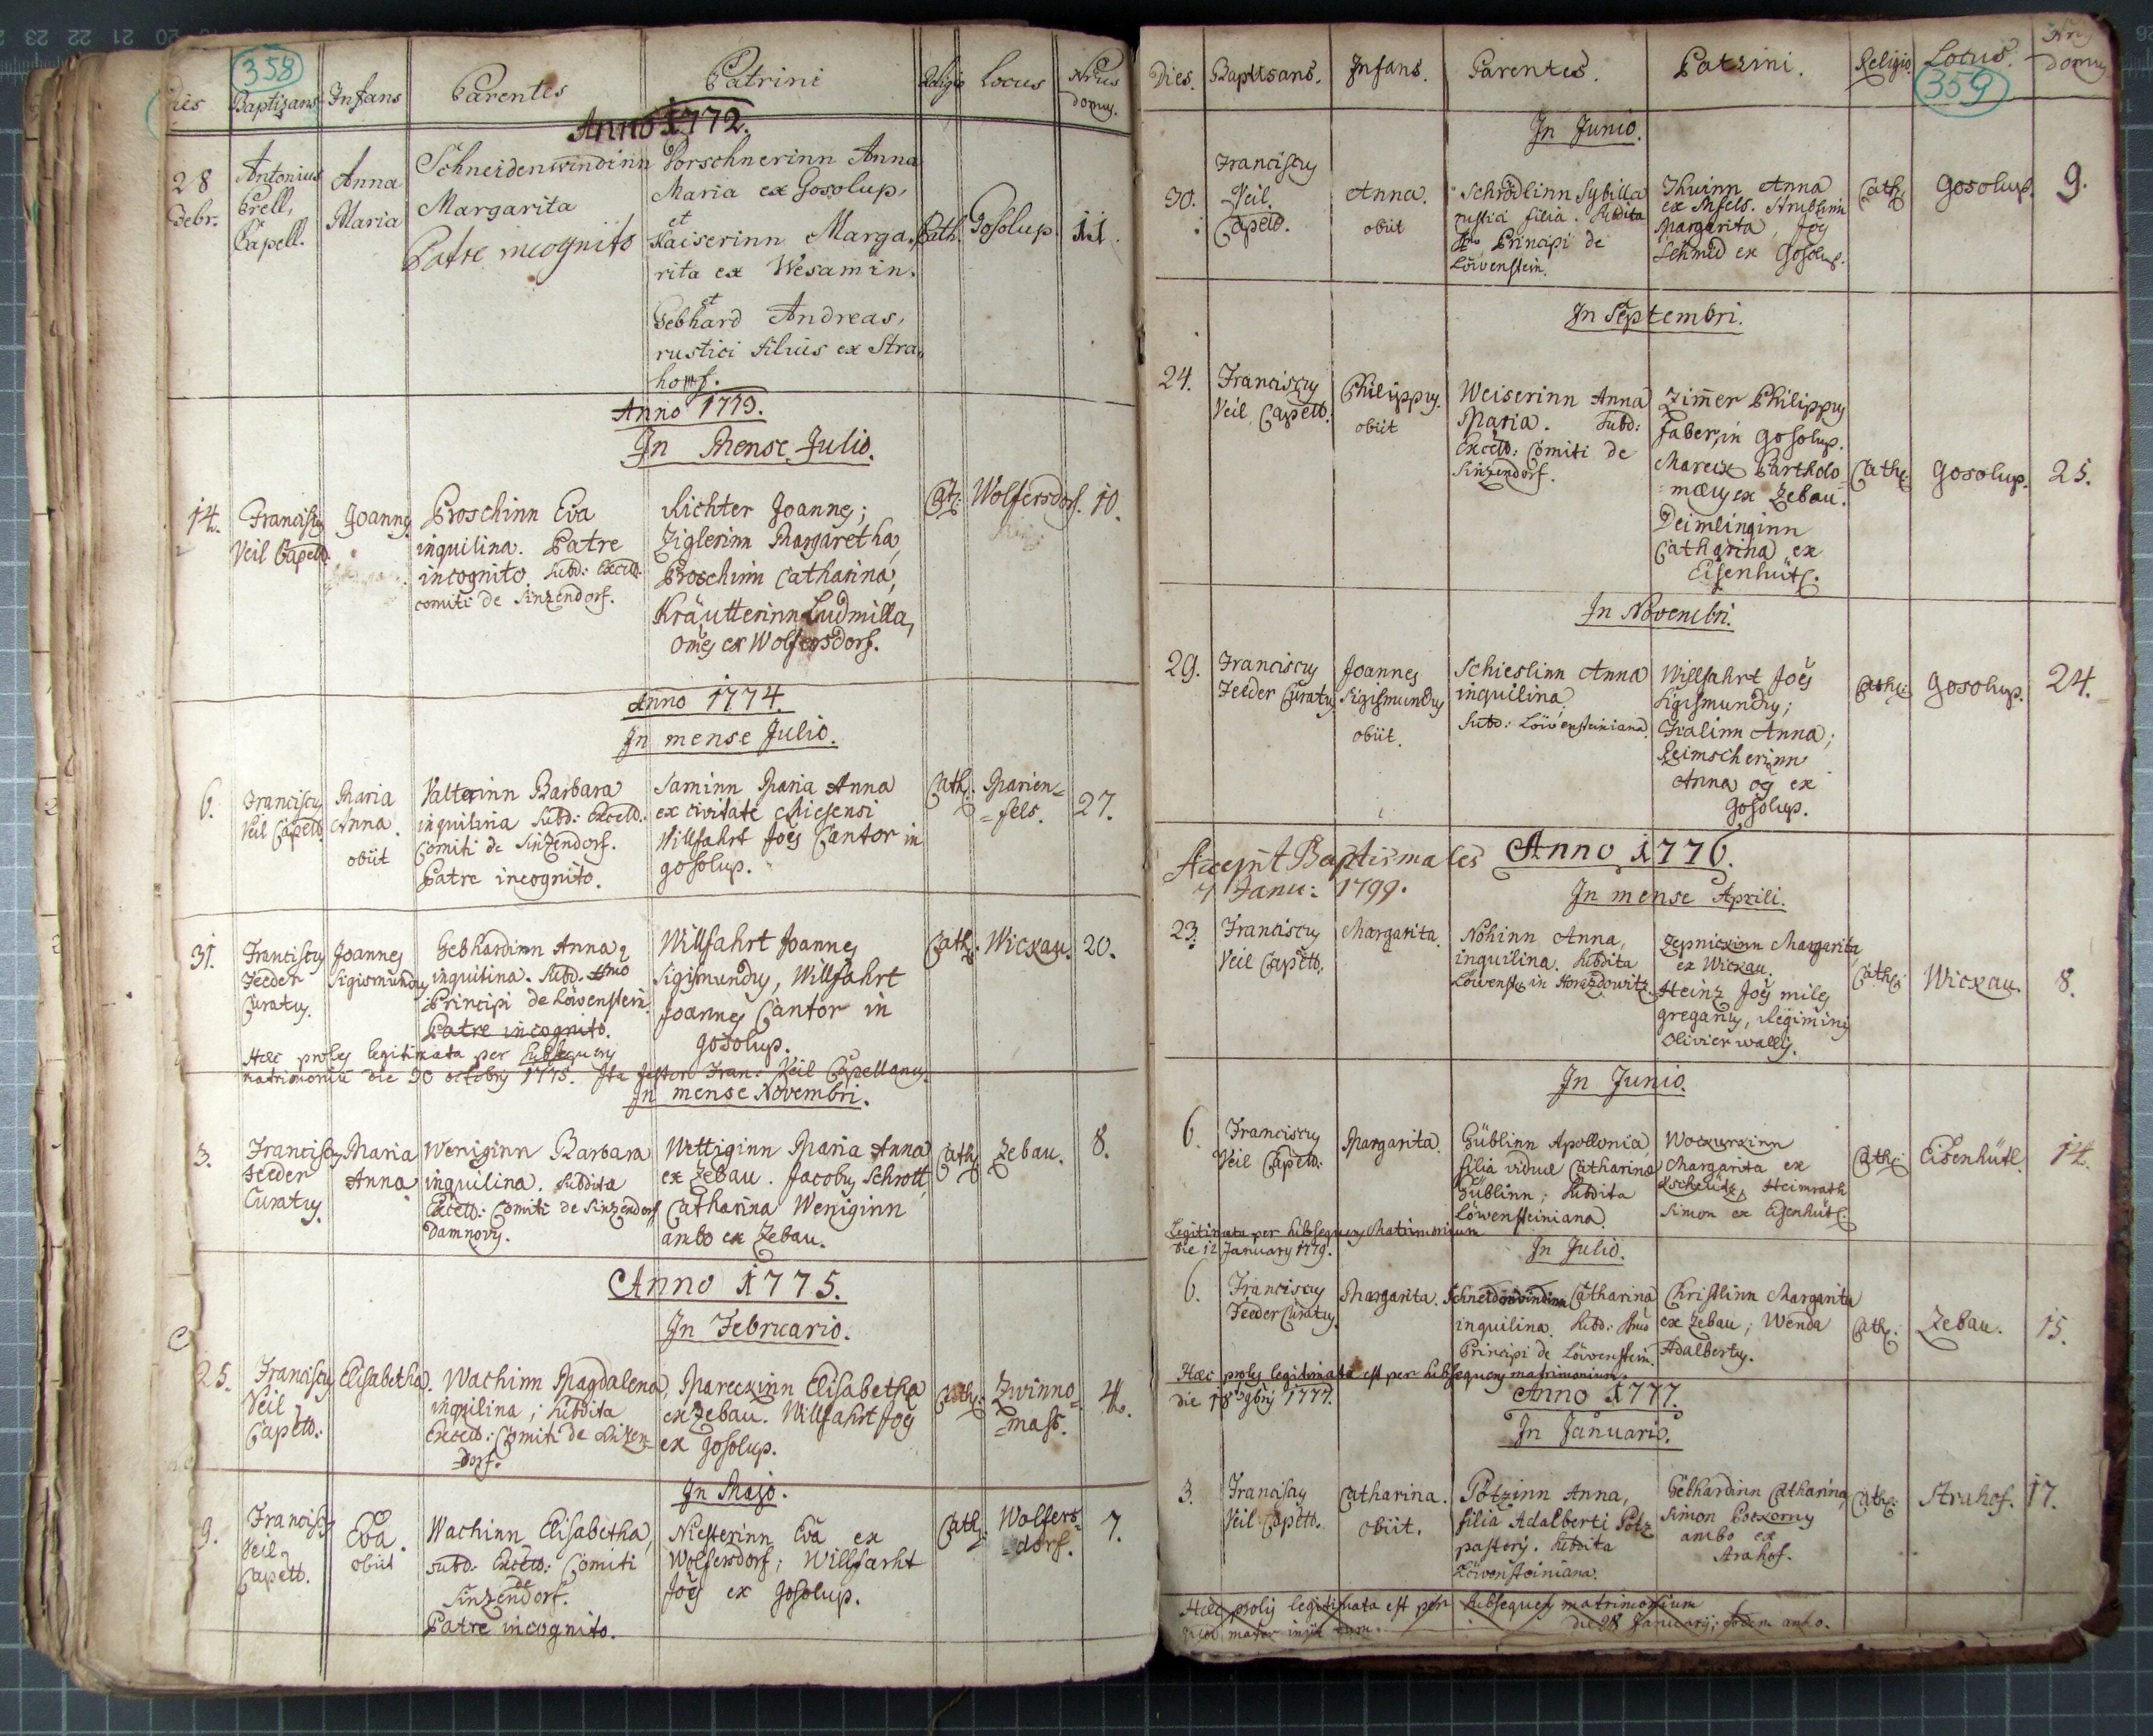 358
Dies Baptizans Infans Parentes Patrini Religio Locus Nrus domus.
Anno 1772.
28 Febr.
Antonius
Prell,
Capell.
Anna
Maria
Schneidenwindinn
Margarita
Patre incognito
Porschnerinn Anna
Maria ex Gosolup,
et
Kaiserinn Marga,
rita ex Wesamin.
et
Gebhard Andreas,
rustici filius ex Stra,
hoff.
Cath. Gosolup 11.
Anno 1773.
In Mense Julio.
14.
Franciscus
Veil Capell.
Joannes
Proschinn Eva
inquilina. Patre
incognito. Subd: Excell:
comiti de Sinzendorf.
Richter Joannes;
Ziglerinn Margaretha,
Proschinn Catharina,
Kräutterinn Ludmilla,
omes ex Wolfersdorf.
Cat: Wolfersdorf. 10.
Anno 1774.
In mense Julio.
6.
Franciscus
Veil Capell.
Maria
Anna.
obiit
Valterinn Barbara
inquilina Subd: Excell.
Comiti de Sinzendorf.
Patre incognito.
Saminn Maria Anna
ex civitate Miesensi
Willfahrt Joes Cantor in
gosolup.
Cath: Marien=
=fels. 27.
31.
Franciscus
Feeder
Curatus.
Joannes
Sigismundus
Gebhardinn Anna
inquilina. Subd. Smo
Principi de Löwenstein.
Patre incognito.
Willfahrt Joannes
Sigismundus, Willfahrt
Joannes Cantor in
gosolup.
Cath: Wickau. 20.
Haec proles legitimata per subsequens
matrimonium die 30 octobris 1775. Ita testor Fran: Veil Capellanus.
In mense Novembri.
3.
Franciscus
Feeder
Curatus.
Maria
Anna
Weniginn Barbara
inquilina. Subdita
Excell: Comiti de Sinzendorf
Damnovy.
Wettiginn Maria Anna
ex Zebau. Jacobus Schrott,
Catharina Weniginn
ambo ex Zebau.
Cath: Zebau. 8.
Anno 1775.
In Februario.
25.
Franciscus
Veil
Capell.
Elisabetha.
Wachinn Magdalena,
inquilina; subdita
Excell: Comiti de Sinzen=
=dorf.
Mareckinn Elisabetha
ex Zebau. Willfahrt Joes
ex gosolup.
Cath: Zwinno=
=mass. 4.
In Majo.
9.
Franciscus
Veil
Capell.
Eva.
obiit
Wachinn Elisabetha,
subd: Excell: Comiti
de
Sinzendorf.
Patre incognito.
Niesterinn Eva ex
Wolfersdorf; Willfarht
Joes ex gosolup.
Cath: Wolfers=
=dorf. 7.
Dies. Baptisans. Infans. Parentes. Patrini. Religio. Locus. Nrus domus
359
In Junio.
30.
Franciscus
Veil.
Capell.
Anna.
obiit
Schrödlinn Sybilla
rustici filia. Subdita
Smo Principi de
Löwenstein.
Thuinn Anna
Margarita, Joes
Schmid ex Gosolup.
Cath: gosolup. 9.
In Septembri.
24.
Franciscus
Veil Capell.
Philippus.
obiit
Weiserinn Anna
Maria. Subd:
Excell: Comiti de
Sinzendorf.
Zimer Philippus
faber, in gosolup.
Mareck Bartholo=
=mæus ex Zebau.
Deimlinginn
Catharina ex
Eisenhütl.
Cath: gosolup. 25.
In Novembri.
29.
Franciscus
Feeder Curatus
Joannes
Sigismundus
obiit.
Schieslinn Anna
inquilina,
Subd: Löwensteiniana.
Willfahrt Joes
Sigismundus;
Fralinn Anna;
Leimscherinn
Anna os ex
gosolup.
Cath: gosolup. 24.
Anno 1776.
Accepit Baptismales
7 Janu: 1799.
In mense Aprili.
23.
Franciscus
Veil Capell.
Margarita.
Nöhinn Anna,
inquilina. Subdita
Löwenst: in Horazdowitz.
Zepnickinn Margarita
ex Wickau.
Heinz Joes miles
gregarius, Regiminis
Olivier wallis.
Cath: Wickau. 8.
In Junio.
6.
Franciscus
Veil Capell.
Margarita.
Güblinn Apollonia,
filia viduæ Catharinæ
Güblinn; Subdita
Löwensteiniana.
Wockurkinn
Margarita ex
Simon ex Eisenhütl.
Cath: Eisenhütl. 14.
Legitimata per subsequens Matrimonium
die 12 January 1779.
In Julio.
6.
Franciscus
Feeder Curatus.
Margarita.
Schneidenwindinn Catharina
inquilina. Subd: Smo
Principi de Löwenstein.
Christlinn Margarita
ex Zebau; Wenda
Adalbertus.
Cath: Zebau. 15.
Haec proles legitimata est per subsequens matrimonium.
die 18 9bris 1777.
Anno 1777.
In Januario.
3.
Franciscus
Veil Capell.
Catharina.
obiit.
Pötzinn Anna,
filia Adalberti Pötz
pastoris. Subdita
Löwensteiniana.
Gebhardinn Catharina,
Simon Pockorny
ambo ex
Strahof.
Cath: Strahof. 17.
Haec proles legitimata est per subsequens matrimonium
die 28 Januarij; eodem anno.